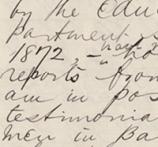 by the Edu
partment
1872, - 
reports from
am in pos
testimonia
men in Ba